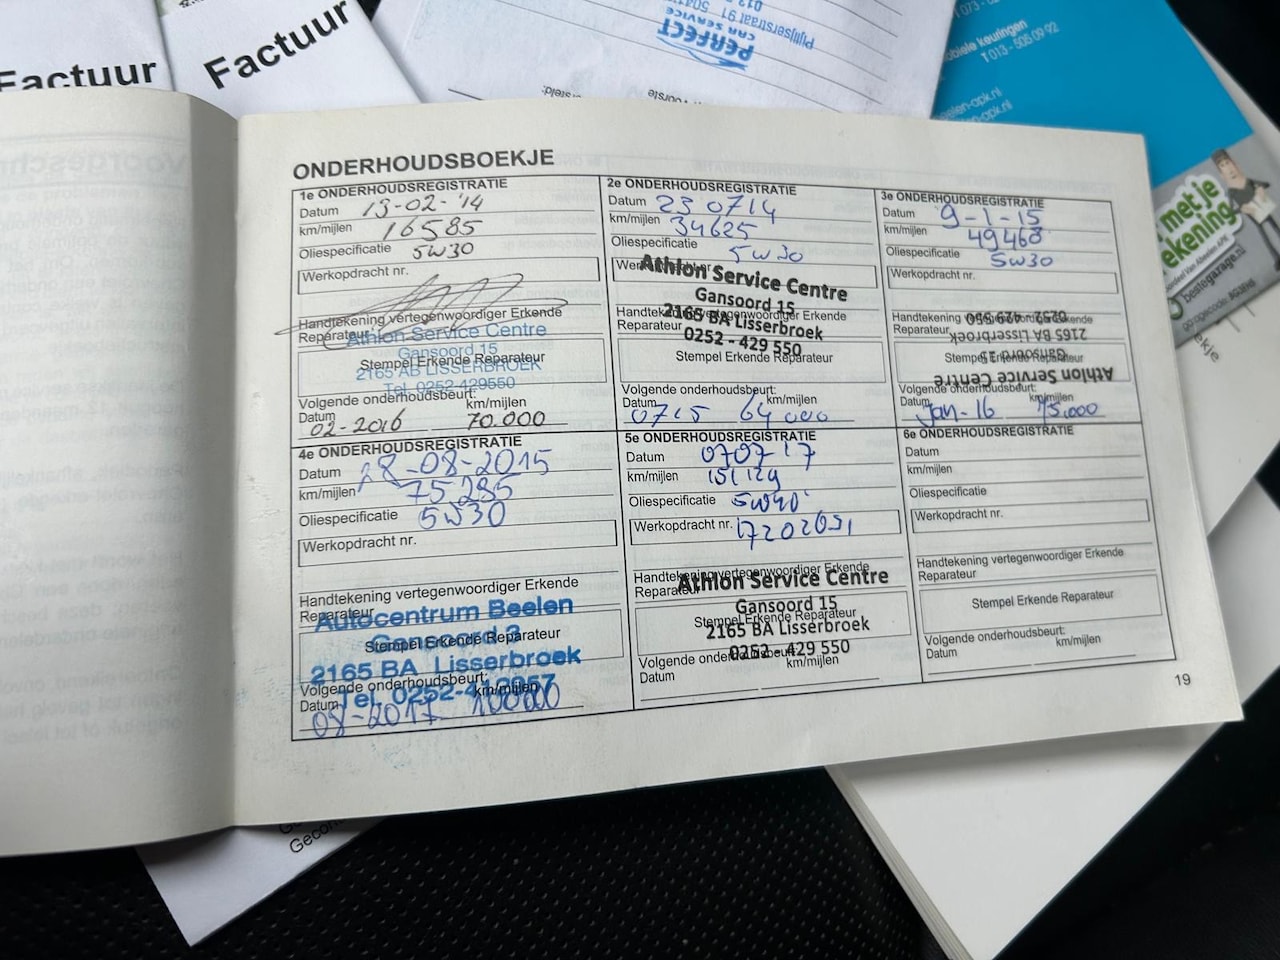 Factuur
Factuur
PERFECT
CAR SERVICE
Pijlijserstraat 91
T 073 - 0
mobiele keuringen
T 013 - 505 09 92
beelen-apk.nl
met je
rekening
bestegarage.nl
ONDERHOUDSBOEKJE
1e ONDERHOUDSREGISTRATIE
Datum 13-02-'14
km/mijlen 16585
Oliespecificatie 5W30
Werkopdracht nr.
Handtekening vertegenwoordiger Erkende
Reparateur
Athlon Service Centre
Gansoord 15
Stempel Erkende Reparateur
2165 AB LISSERBROEK
Tel. 0252-429550
Volgende onderhoudsbeurt:
Datum km/mijlen
02-2016 70.000
2e ONDERHOUDSREGISTRATIE
Datum 23 0714
km/mijlen 34625
Oliespecificatie 5w30
Werkopdracht nr.
Athlon Service Centre
Gansoord 15
Handtekening vertegenwoordiger Erkende
Reparateur
2165 BA Lisserbroek
0252 - 429 550
Stempel Erkende Reparateur
Volgende onderhoudsbeurt:
Datum km/mijlen
0715 64000
3e ONDERHOUDSREGISTRATIE
Datum 9-1-15
km/mijlen 49468
Oliespecificatie 5w30
Werkopdracht nr.
Handtekening vertegenwoordiger Erkende
Reparateur
0252 - 429 550
2165 BA Lisserbroek
Stempel Erkende Reparateur
Gansoord 15
Athlon Service Centre
Volgende onderhoudsbeurt:
Datum km/mijlen
Jan-16 75.000
4e ONDERHOUDSREGISTRATIE
Datum 28-08-2015
km/mijlen 75285
Oliespecificatie 5W30
Werkopdracht nr.
Handtekening vertegenwoordiger Erkende
Reparateur
Autocentrum Beelen
Gansoord 2
Stempel Erkende Reparateur
2165 BA Lisserbroek
Volgende onderhoudsbeurt:
Tel. 0252-
Datum km/mijlen
08-2017 100000
5e ONDERHOUDSREGISTRATIE
Datum 070717
km/mijlen 151129
Oliespecificatie 5W40
Werkopdracht nr. 17202091
Handtekening vertegenwoordiger Erkende
Reparateur
Athlon Service Centre
Gansoord 15
Stempel Erkende Reparateur
2165 BA Lisserbroek
0252 - 429 550
Volgende onderhoudsbeurt:
Datum km/mijlen
6e ONDERHOUDSREGISTRATIE
Datum
km/mijlen
Oliespecificatie
Werkopdracht nr.
Handtekening vertegenwoordiger Erkende
Reparateur
Stempel Erkende Reparateur
Volgende onderhoudsbeurt:
Datum km/mijlen
19